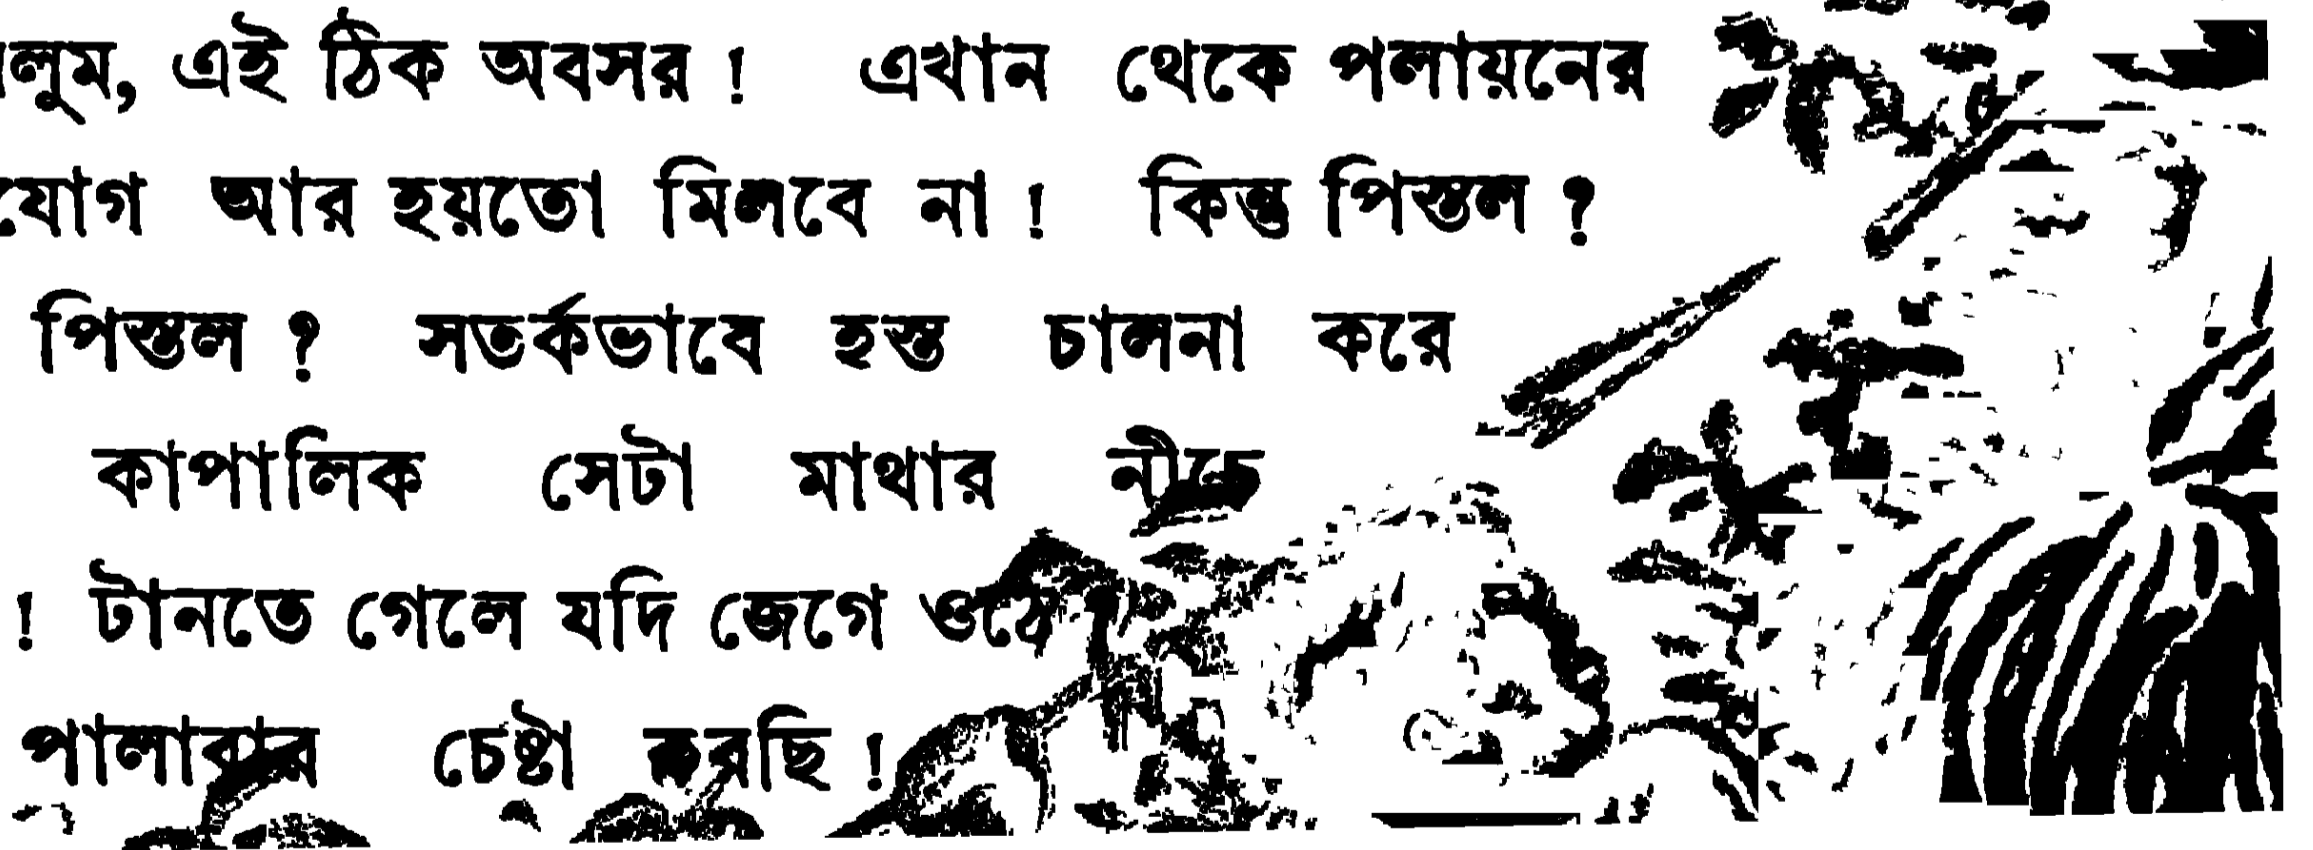 লুম, এই ঠিক অবসর ! এখান থেকে পলায়নের
যোগ আর হয়তো মিলবে না ! কিন্তু পিস্তল ?
পিস্তল ? সতর্কভাবে হস্ত চালনা করে
কাপালিক সেটা মাথার নীচে
! টানতে গেলে যদি জেগে ওঠে
পালাবার চেষ্টা করছি !